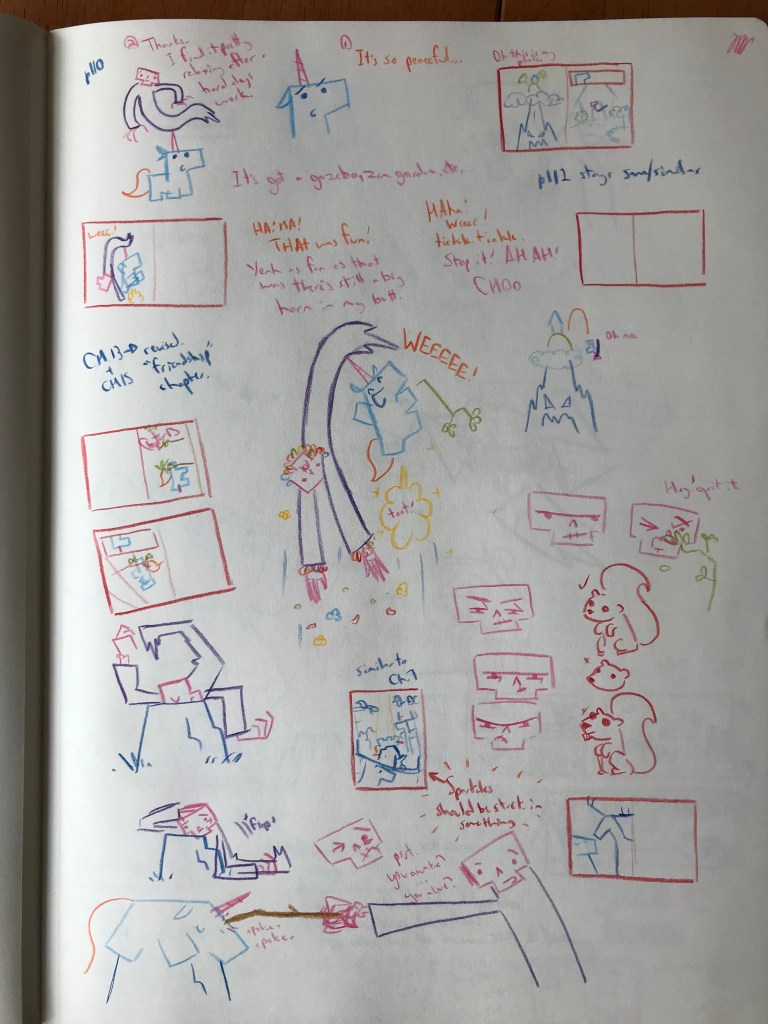 p110
② Thanks.
I find it pretty
relaxing after a
hard day's
work.
①
It's so peaceful...
Oh this is my
It's got a gazebo, zen garden, etc.
p112 stays same/similar
weee!
HA! HA!
THAT was fun!
Yeah as fun as that
was there's still a big
horn in my butt.
HAha!
weeee!
tickle tickle.
Stop it! AHAH!
CHOO
CH13 → revised
+
CH15 "friendship"
chapter.
WEEEEE!
Oh no
toot!
Hey! quit it
similar to
Ch. 7
Sparkles
should be stuck in
something
flop!
psst.
you awake?
you alive?
poke
poke